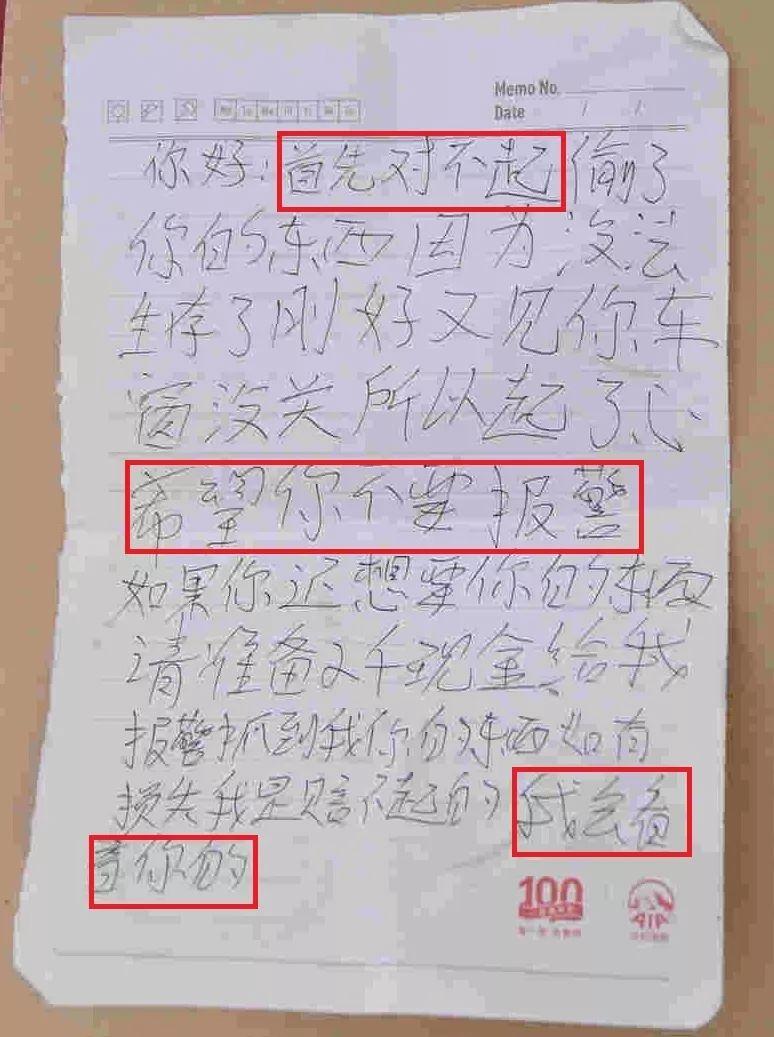 Memo No.
Mo Tu We Th Fr Sa Su
Date / /
你好:首先对不起偷了
你的东西因为没法
生存了刚好又见你车
窗没关所以起了心
希望你不要报警
如果你还想要你的东西
请准备2千现金给我
报警抓到我你的东西如有
损失我是赔不起的我会看
着你的
100